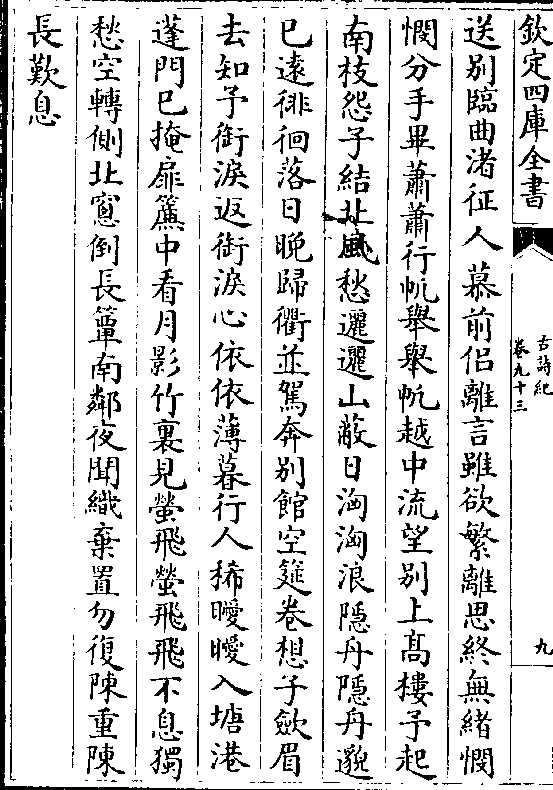 欽定四庫全書
古詩紀
卷九十三
九
送别臨曲渚征人慕前侣離言雖欲繁離思終無緒憫
憫分手畢蕭蕭行帆舉舉帆越中流望别上髙樓予起
南枝怨子結北風愁邐邐山蔽日洶洶浪隠舟隠舟邈
已遠徘徊落日晚歸衢並駕奔别館空筵卷想子歛眉
去知予銜淚返銜淚心依依薄暮行人稀曖曖入塘港
蓬門已掩扉簾中看月影竹裏見螢飛螢飛飛不息獨
愁空轉側北窻倒長簟南鄰夜聞織棄置勿復陳重陳
長歎息